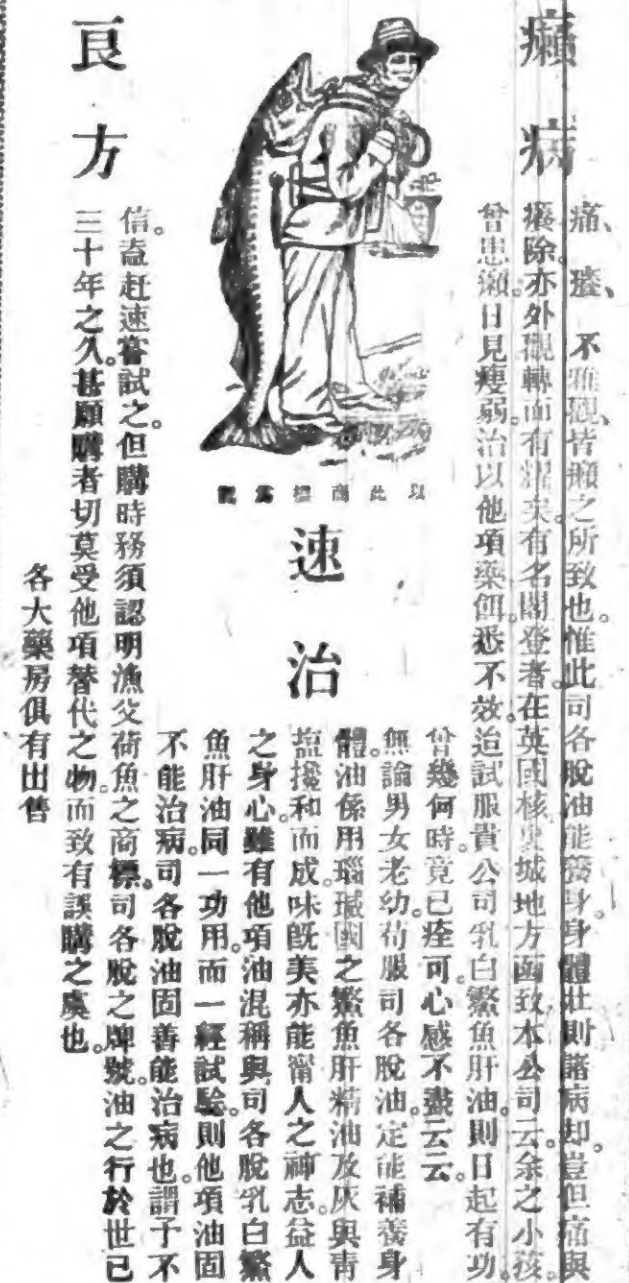 癩病
速治
良方
痛、癢、不雅觀、皆癩之所致也。惟此司各脫油能養身。身體壯則諸病却。豈但痛與
癢除。亦外觀轉而有耀矣。有名閣登者。在英國核史城地方函致本公司云。余之小孩。
曾患癩。日見瘦弱。治以他項藥餌。悉不效。迨試服貴公司乳白鱉魚肝油。則日起有功。
曾幾何時。竟已痊可。心感不盡云云。
無論男女老幼。苟服司各脫油。定能補養身
體。油係用瑙威國之鱉魚肝精油及灰與青
鹽攙和而成。味旣美。亦能甯人之神志。益人
之身心。雖有他項油混稱與司各脫乳白鱉
魚肝油同一功用。而一經試驗。則他項油固
不能治病。司各脫油固善能治病也。謂予不
信。盍赶速嘗試之。但購時務須認明漁父荷魚之商標。司各脫之牌號。油之行於世已
三十年之久。甚願購者切莫受他項替代之物。而致有誤購之虞也。
各大藥房俱有出售
以此商標爲